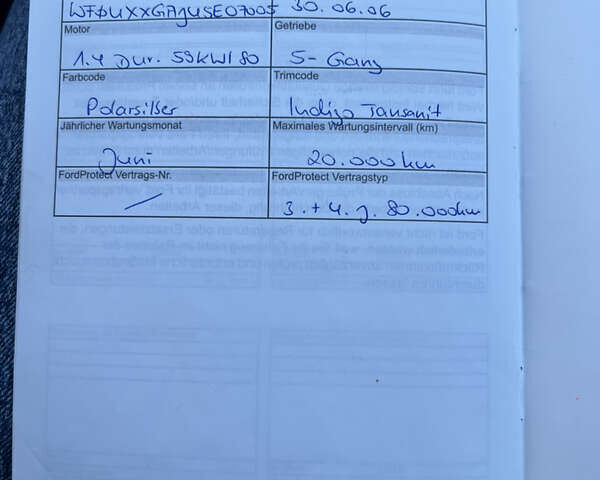 WF0UXXGAJU5E07005 30.06.06
Motor Getriebe
1.4 Dur. 59KW/80 5-Gang
Farbcode Trimcode
Polarsilber Indigo Tansanit
Jährlicher Wartungsmonat Maximales Wartungsintervall (km)
Juni 20.000 km
FordProtect Vertrags-Nr. FordProtect Vertragstyp
3.+4. J. 80.000km